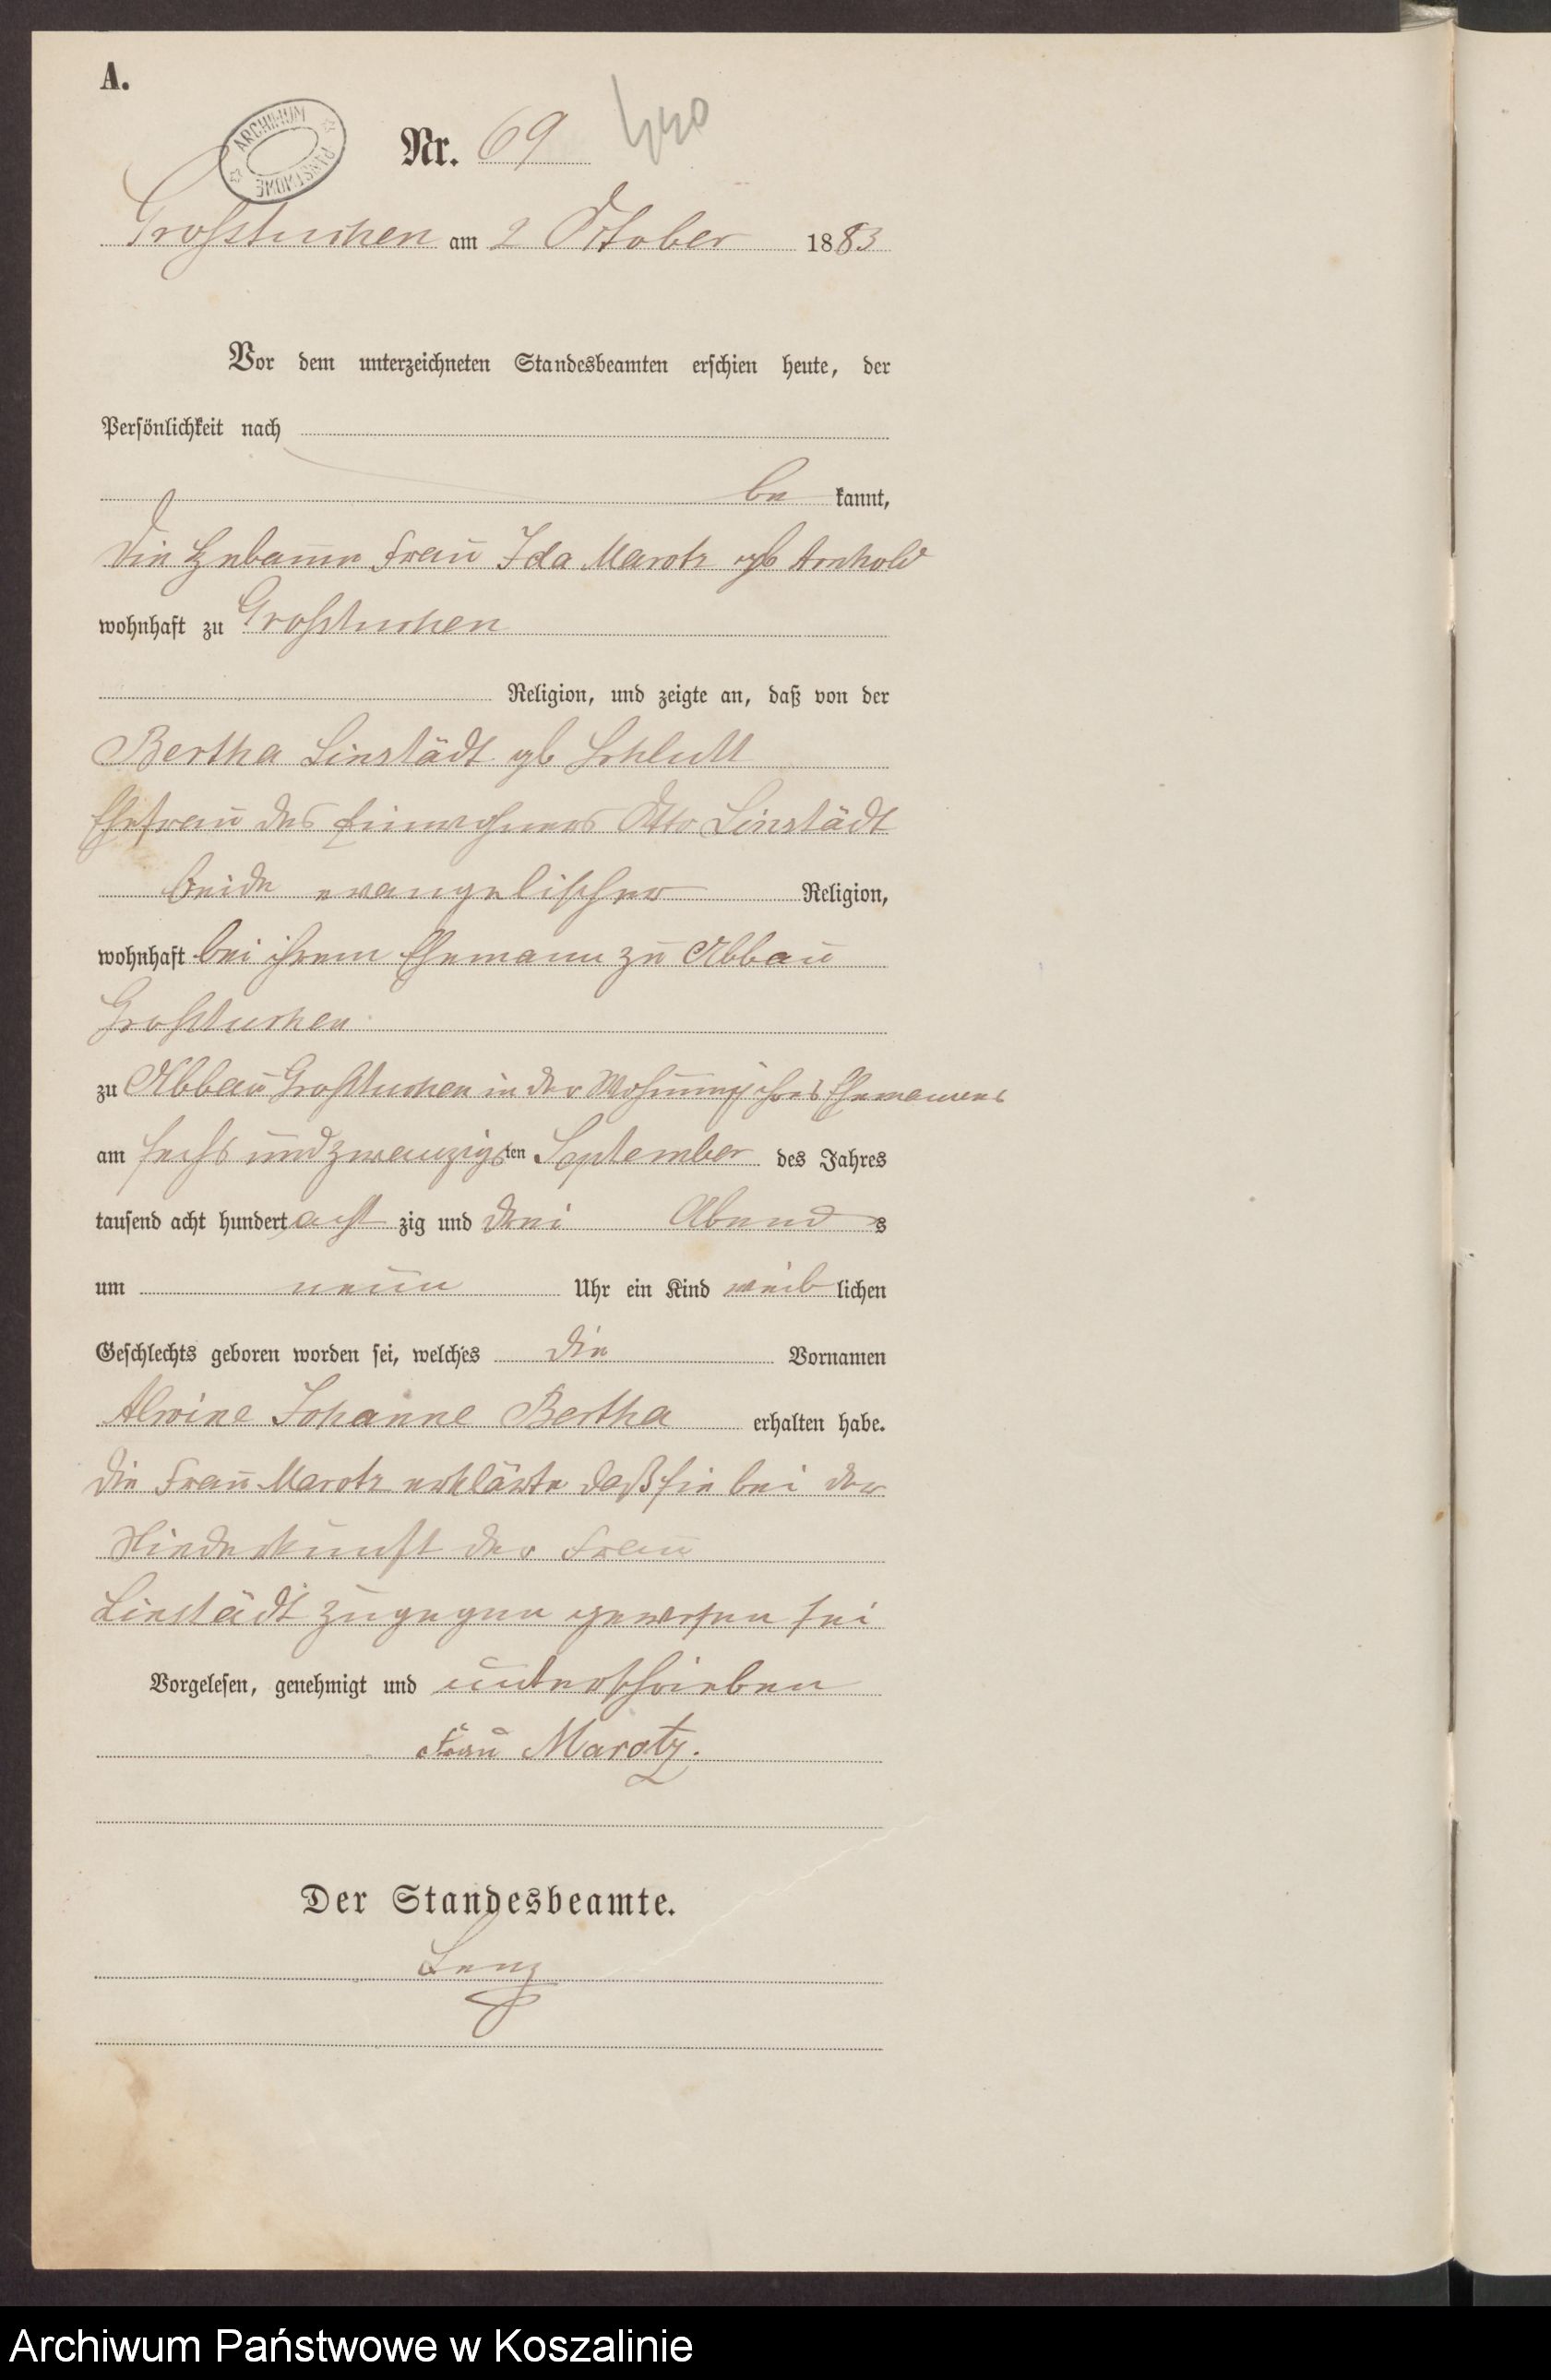 A.
ARCHIWUM PAŃSTWOWE
Nr. 69
Großtuchen am 2 October 1883
Vor dem unterzeichneten Standesbeamten erschien heute, der
Persönlichkeit nach
be kannt,
die Hebamme Frau Ida Marotz geb Arnhold
wohnhaft zu Großtuchen
Religion, und zeigte an, daß von der
Bertha Linstädt geb Schlutt
Ehefrau des Einwohners Otto Linstädt
beide evangelischer Religion,
wohnhaft bei ihrem Ehemann zu Abbau
Großtuchen
zu Abbau Großtuchen in der Wohnung ihres Ehemannes
am sechs und zwanzigsten September des Jahres
tausend acht hundert acht zig und drei Abends
um neun Uhr ein Kind weib lichen
Geschlechts geboren worden sei, welches die Vornamen
Alwine Johanne Bertha erhalten habe.
die Frau Marotz erklärte daß sie bei der
Niederkunft der Frau
Linstädt zugegen gewesen sei
Vorgelesen, genehmigt und unterschrieben
Frau Marotz.
Der Standesbeamte.
Lenz
Archiwum Państwowe w Koszalinie